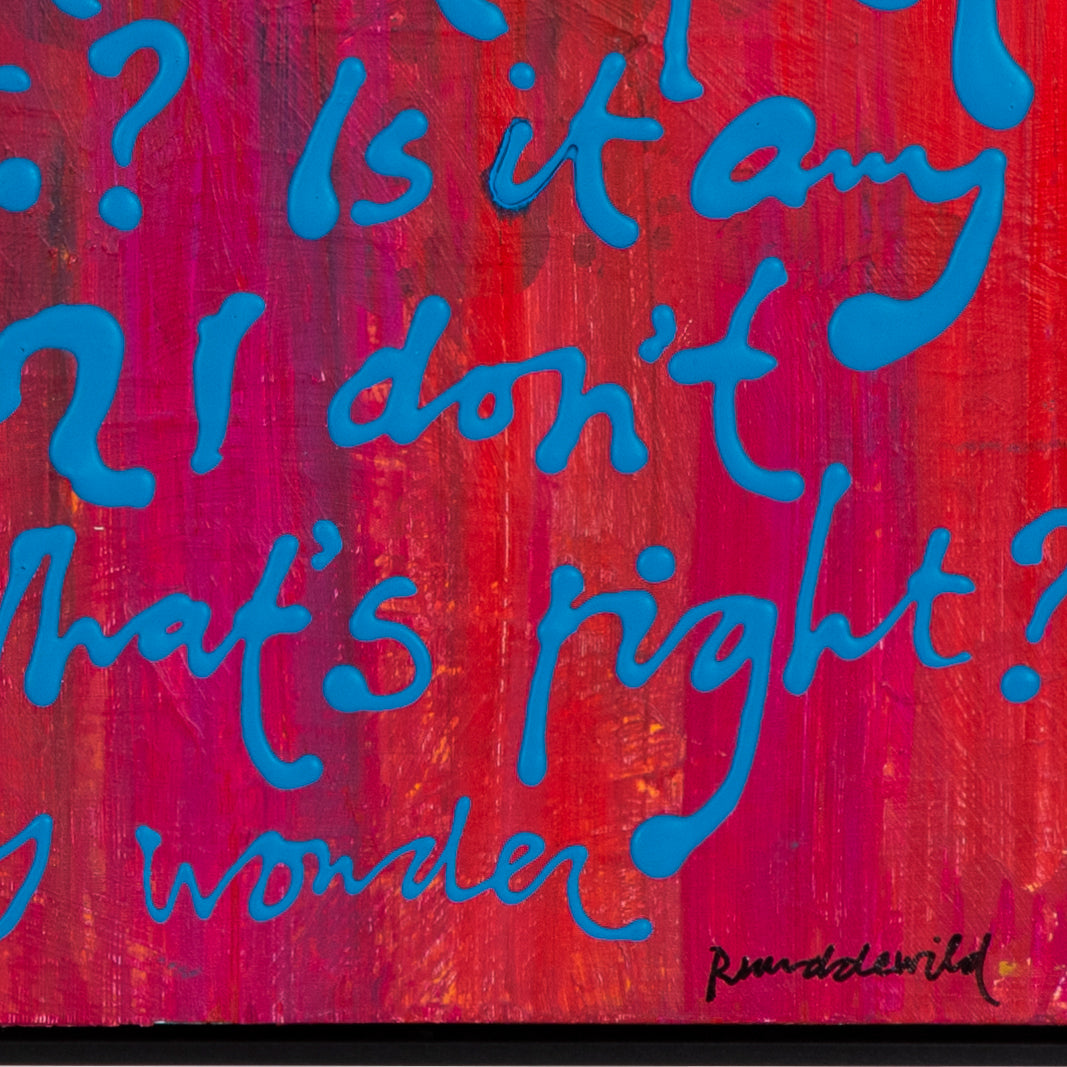 ? Is it any
? I don't
What's right?
wonder
Ruuddewild